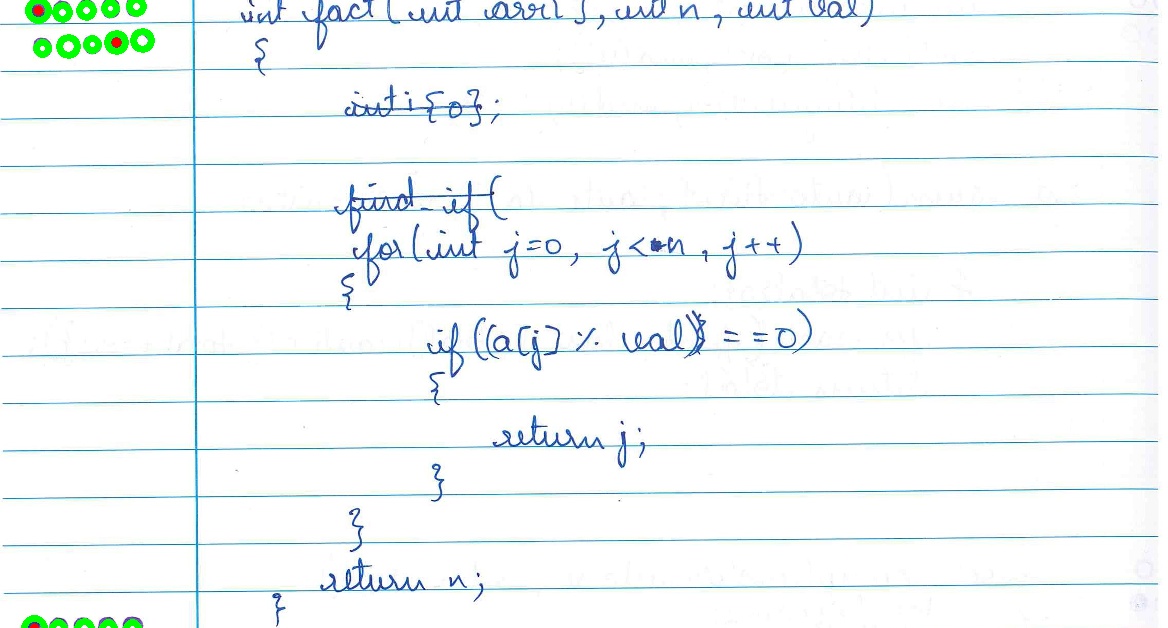 int fact(int arr[], int n, int val)
{
int i{0};
find_if(
for(int j=0, j<n, j++)
{
if((a[j] % val) ==0)
{
return j;
}
}
return n;
}